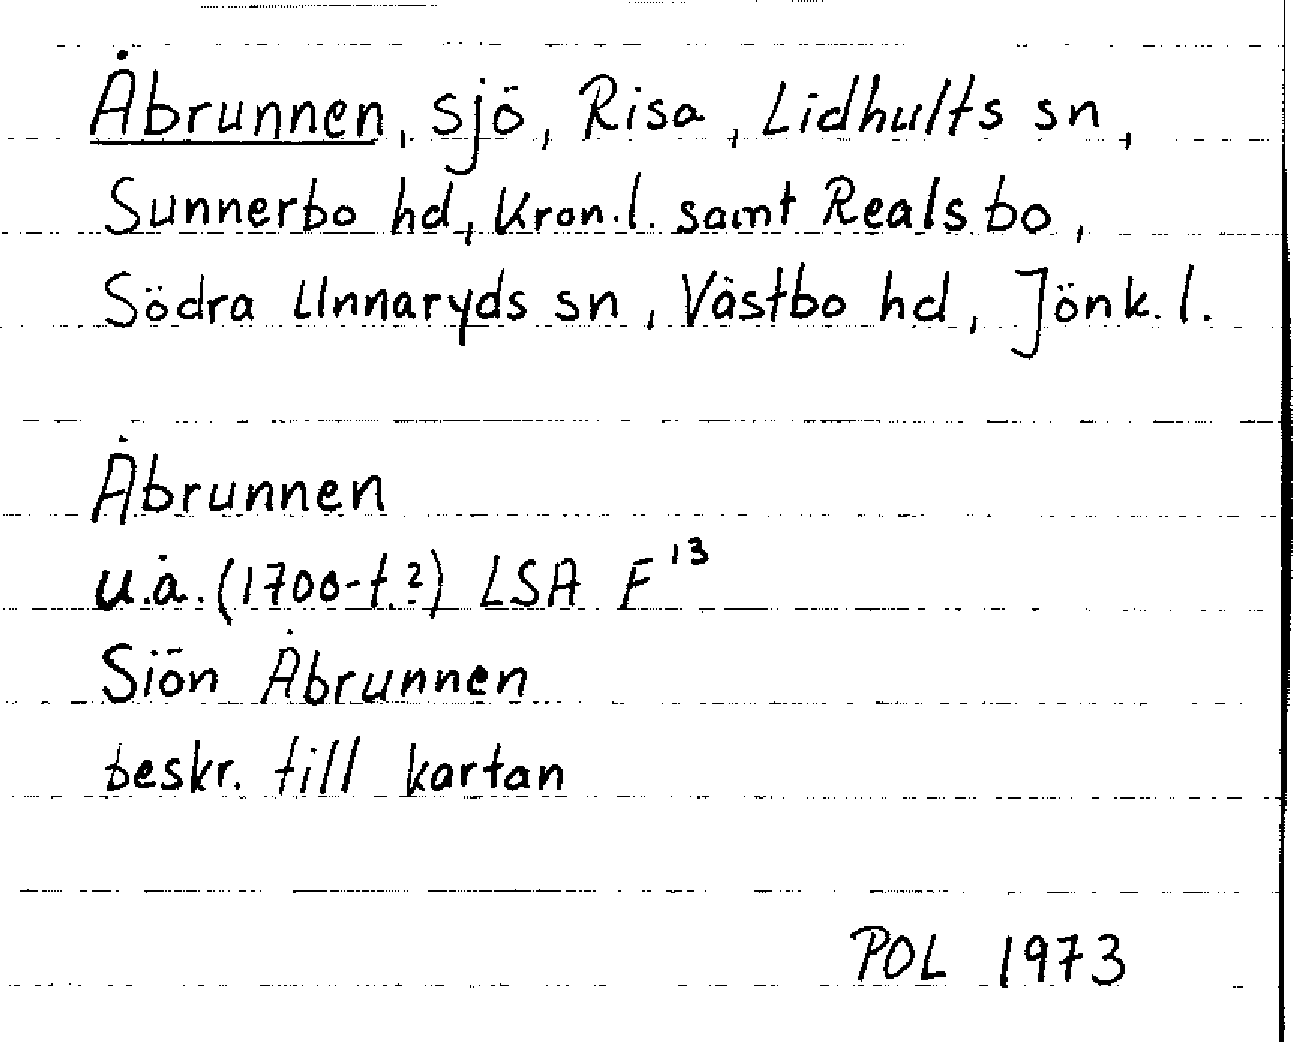 Åbrunnen, sjö, Risa, Lidhults sn,
Sunnerbo hd, Kron.l. samt Realsbo,
Södra Unnaryds sn, Västbo hd, Jönk.l.
Åbrunnen
u.å. (1700-t.?) LSA F¹³
Siön Åbrunnen
beskr. till kartan
POL 1973